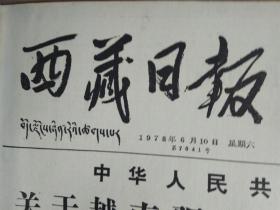 西藏日报
བོད་ལྗོངས་ཉིན་རེའི་ཚགས་པར
1978年6月10日 星期六
中华人民共
关于越南